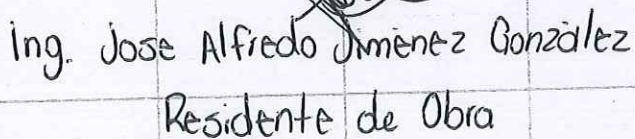 Ing. Jose Alfredo Jimenez González
Residente de Obra